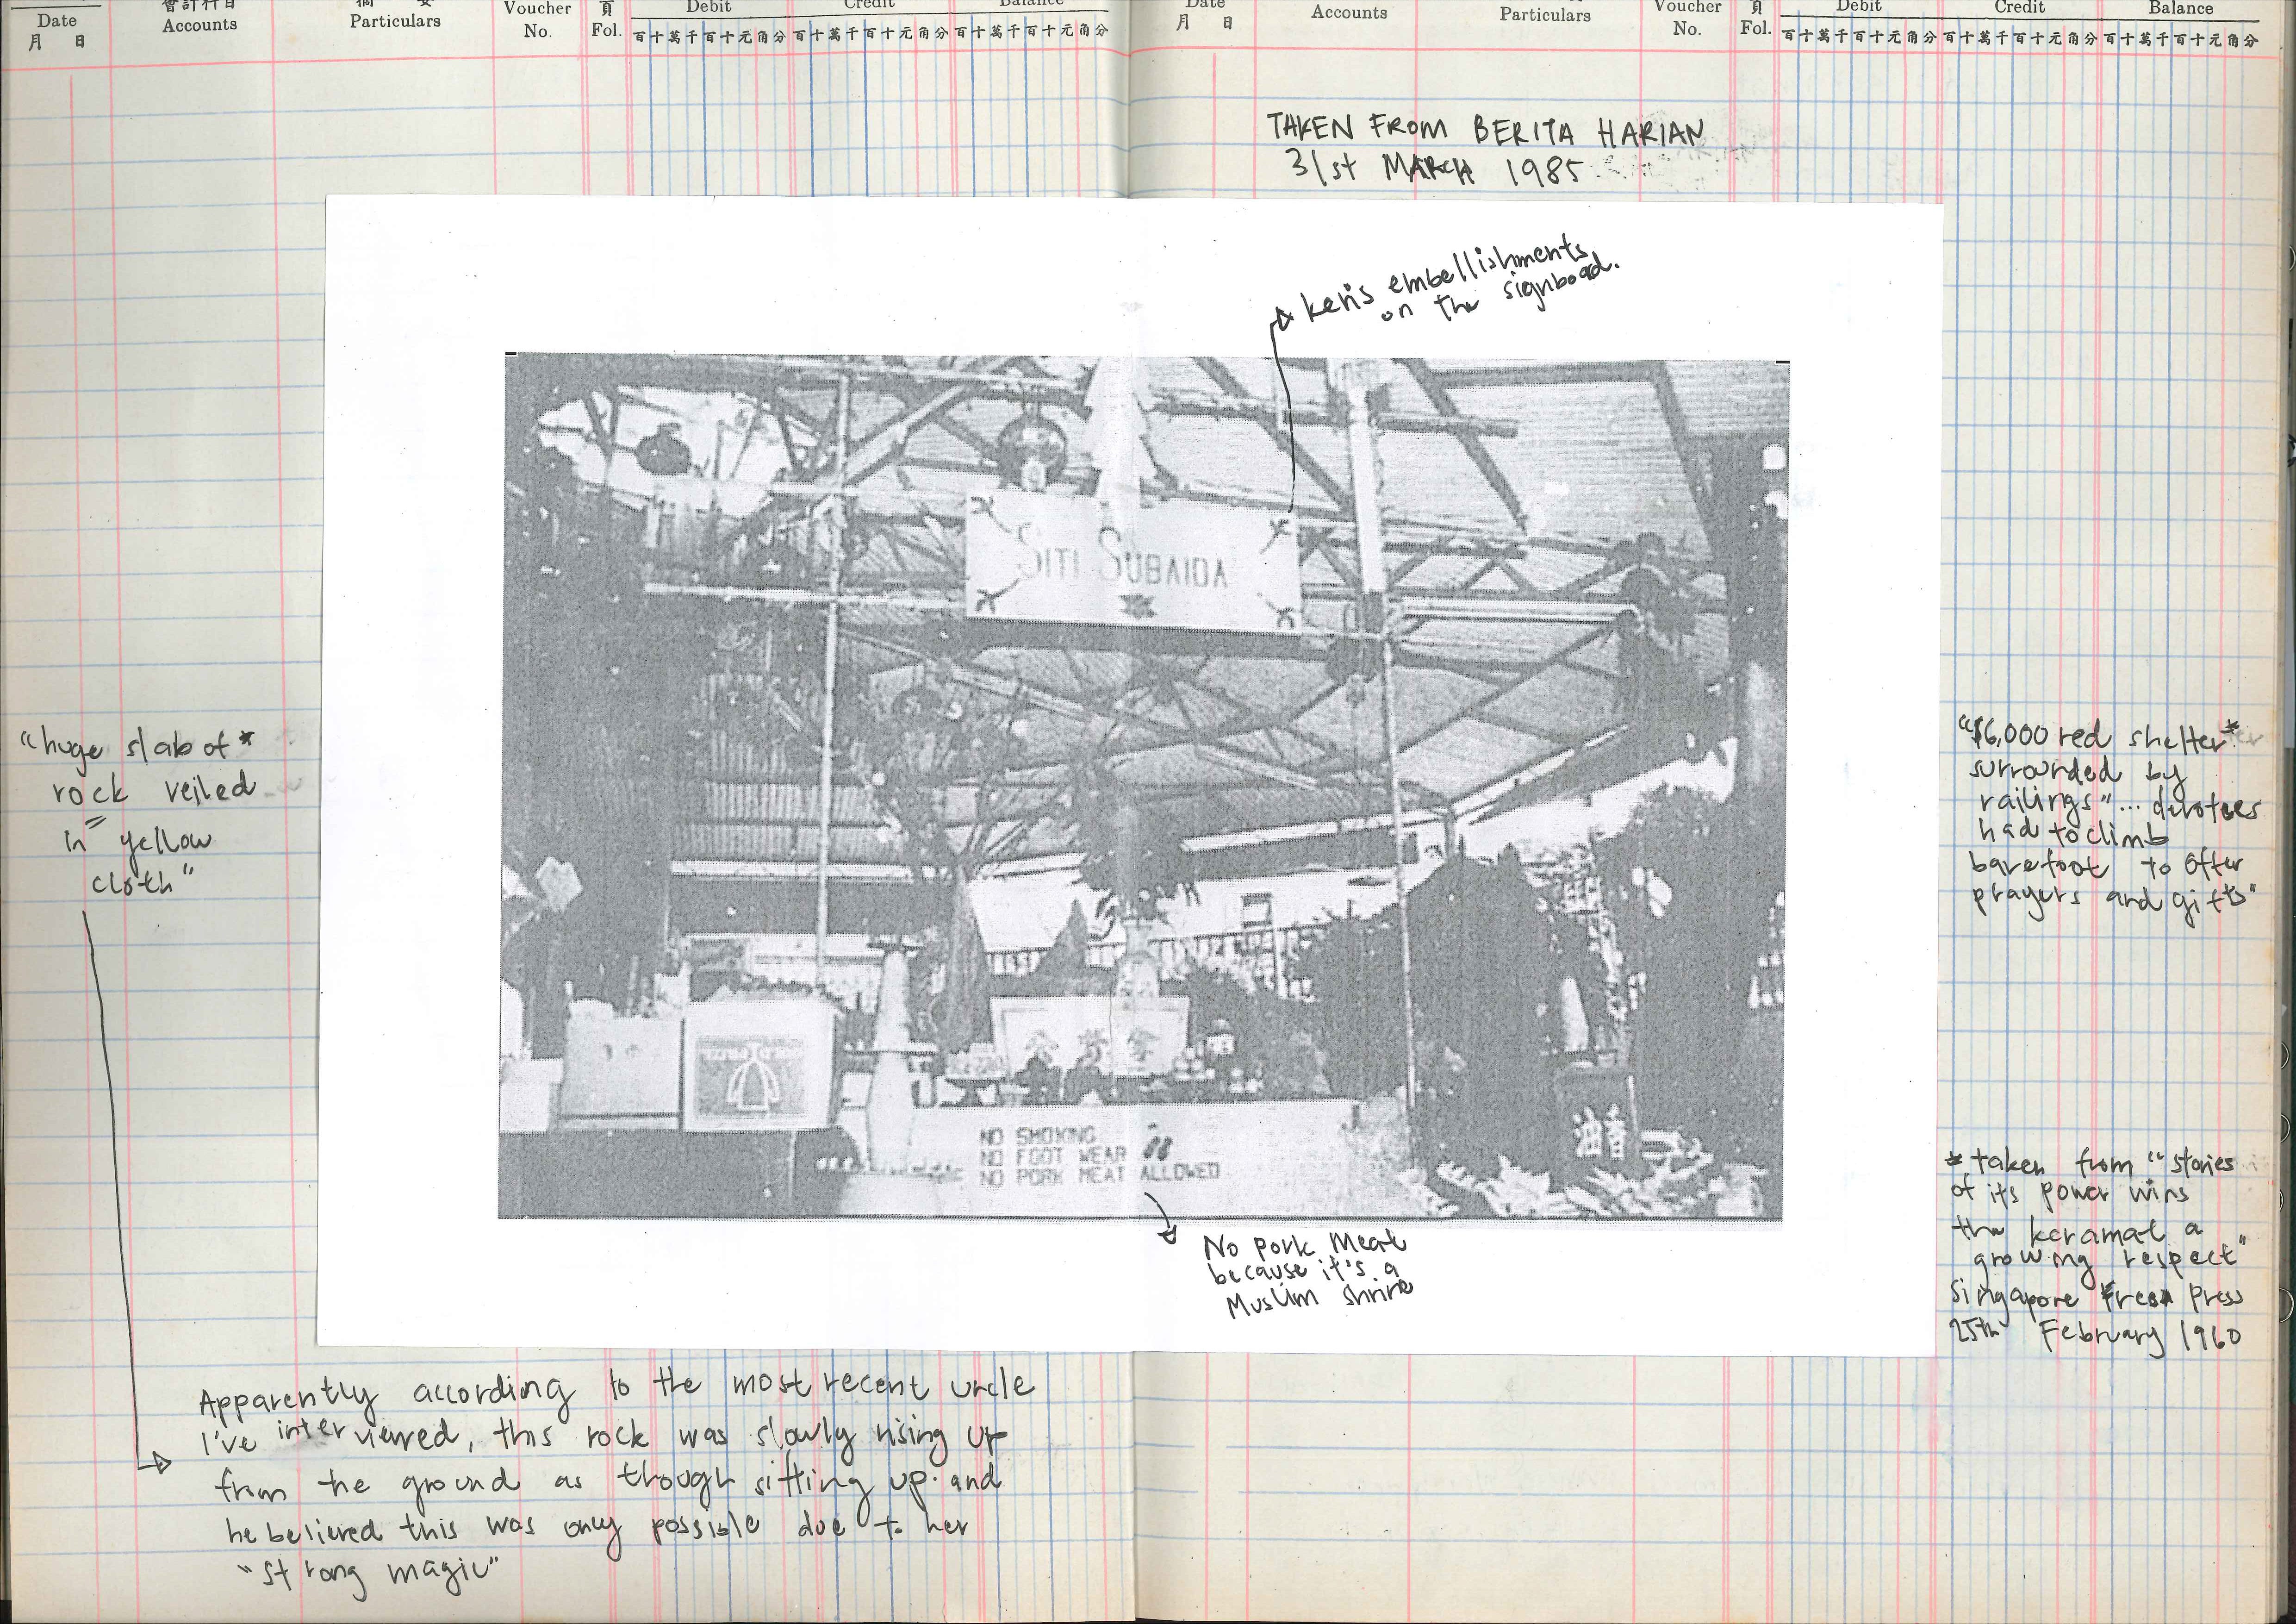 Date
月 日
Accounts
Particulars
Voucher
No.
頁
Fol.
Debit
Credit
Balance
百十萬千百十元角分
百十萬千百十元角分
百十萬千百十元角分
Date
月 日
Accounts
Particulars
Voucher
No.
頁
Fol.
Debit
Credit
Balance
百十萬千百十元角分
百十萬千百十元角分
百十萬千百十元角分
TAKEN FROM BERITA HARIAN
31st MARCH 1985
keris embellishments
on the signboad.
SITI SUBAIDA
"huge slab of *
rock veiled
in yellow
cloth"
"$6,000 red shelter*
surrounded by
railings"... devotees
had to climb
barefoot to offer
prayers and gifts"
NO SMOKING
NO FOOT WEAR
NO PORK MEAT ALLOWED
油香
* taken from "stories
of its power wins
the keramat a
growing respect"
Singapore Free Press
25th February 1960
No pork meat
because it's a
Muslim shrine
Apparently according to the most recent uncle
I've interviewed, this rock was slowly rising up
from the ground as though sitting up. and
he believed this was only possible due to her
"strong magic"